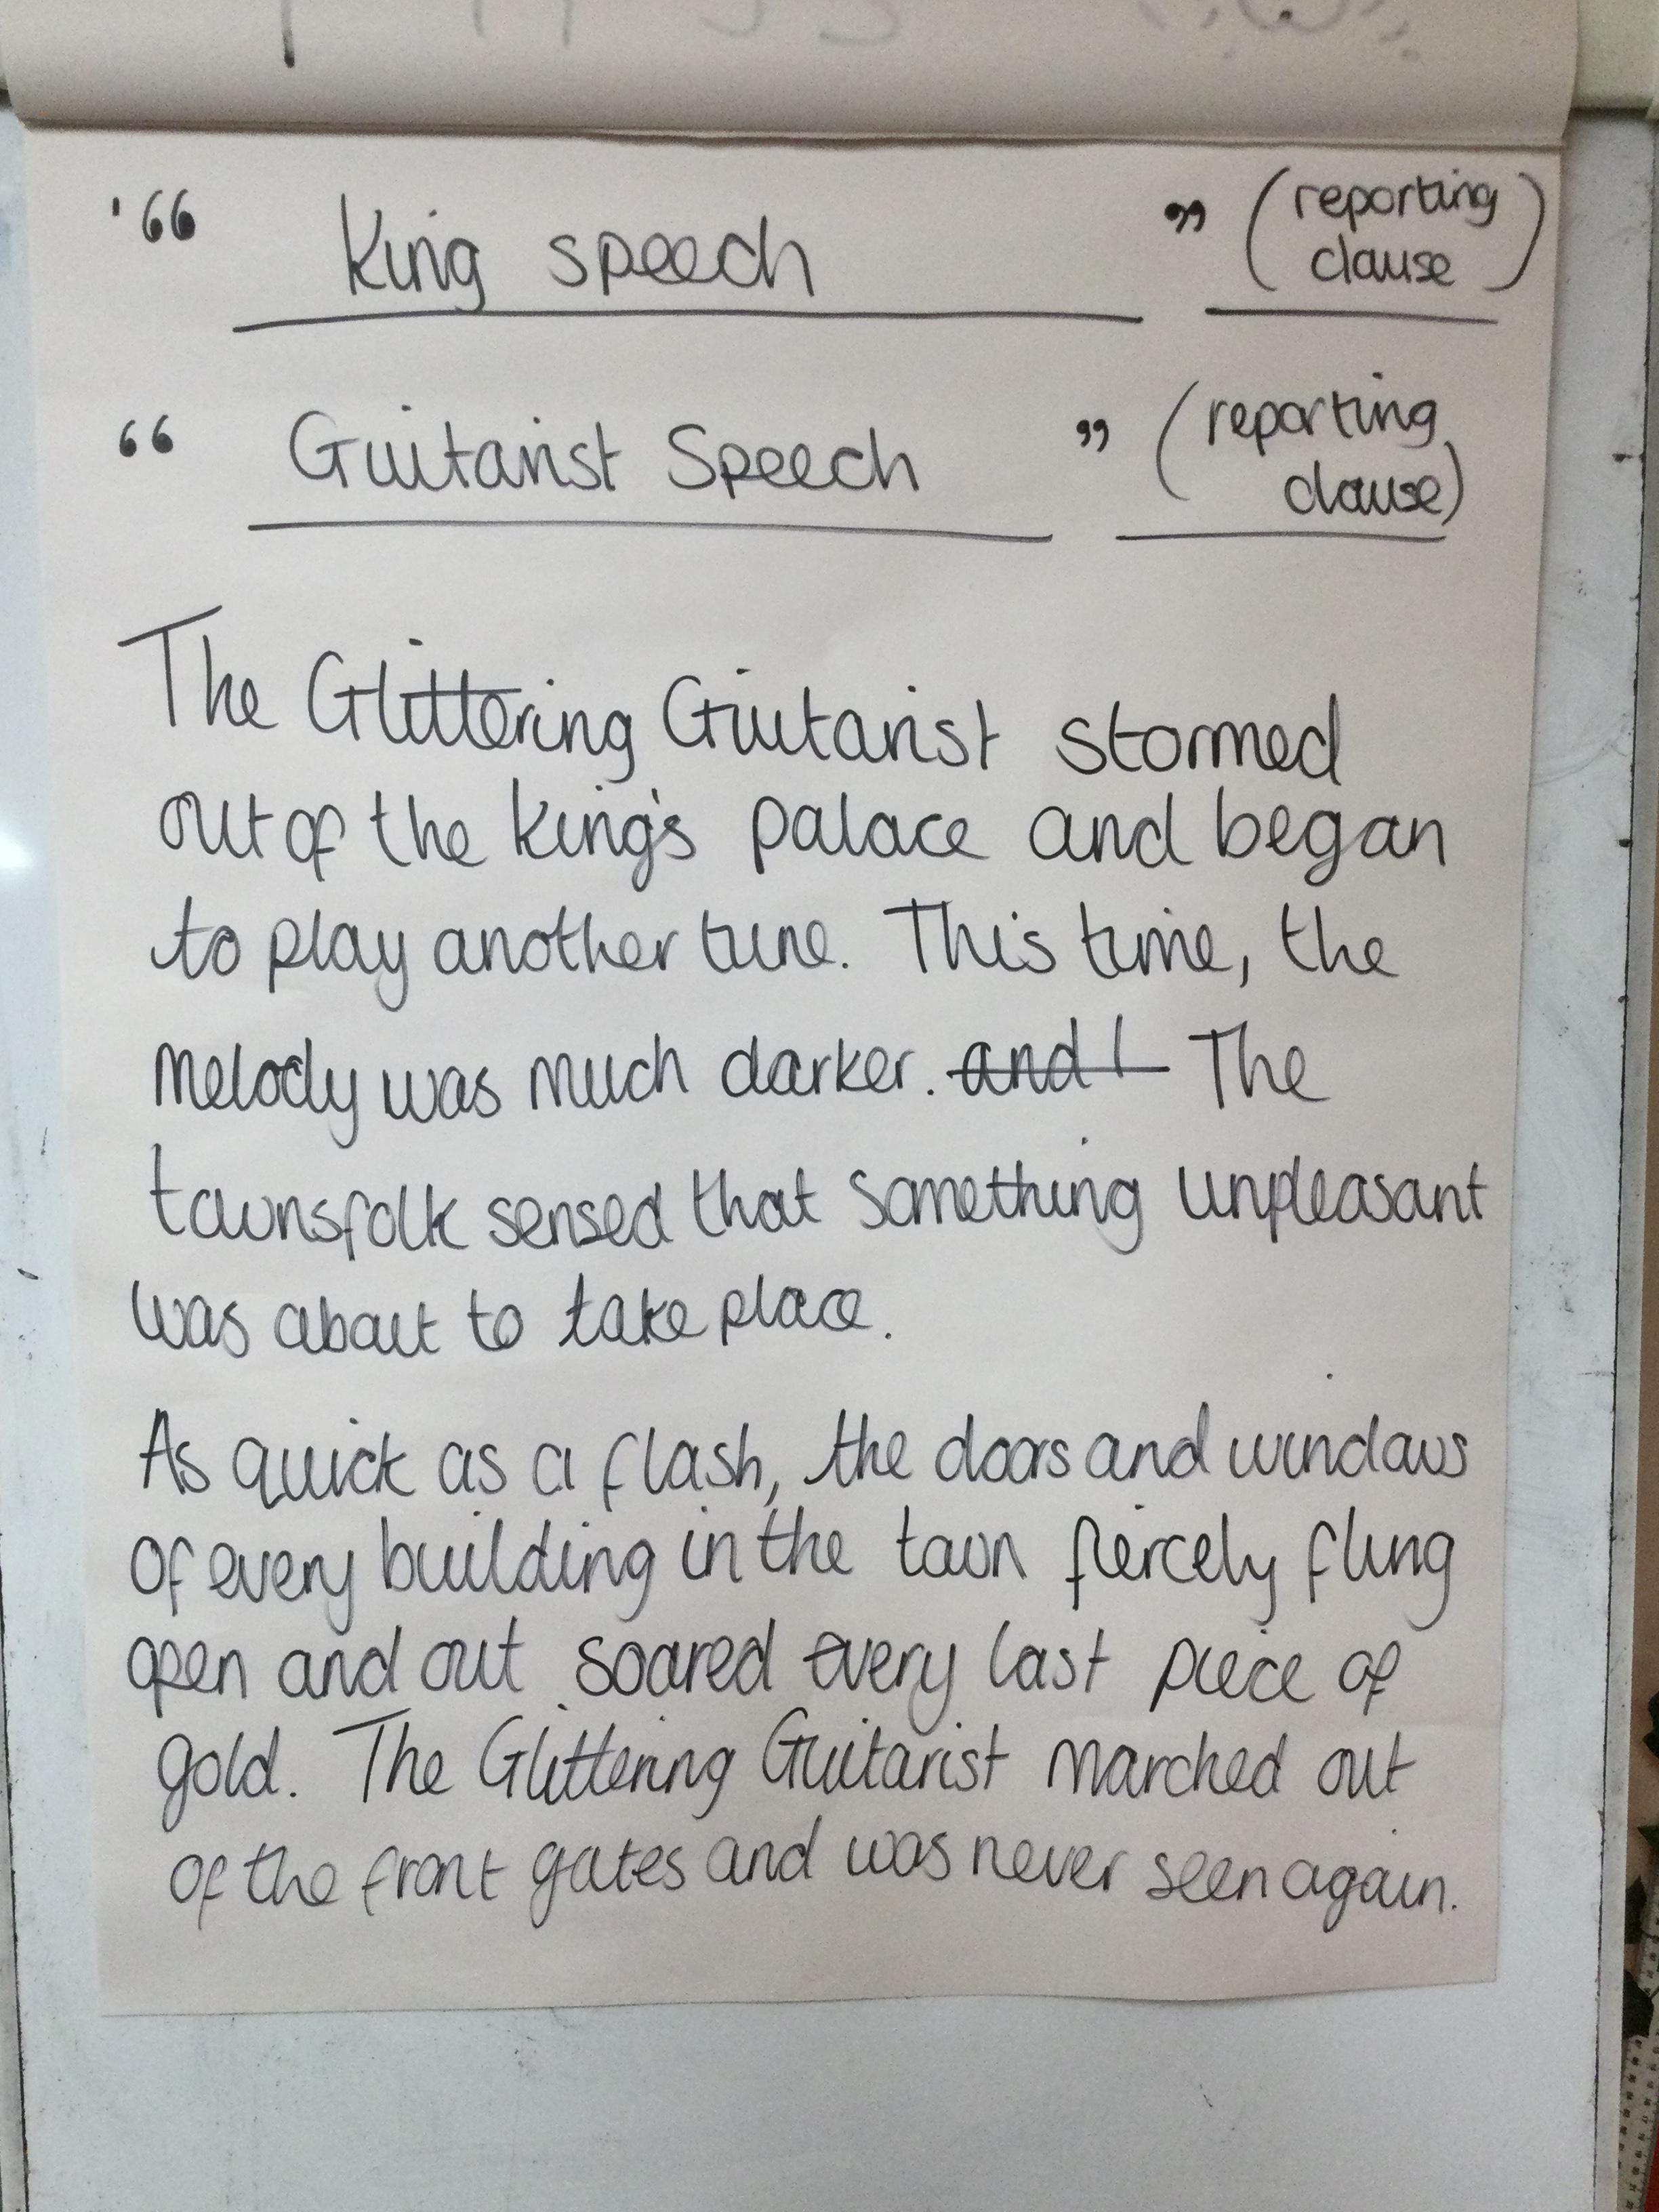 “ King speech ” (reporting clause)
“ Guitarist Speech ” (reporting clause)
The Glittering Guitarist stormed
out of the king's palace and began
to play another tune. This time, the
melody was much darker. ~~and t~~ The
townsfolk sensed that something unpleasant
was about to take place.
As quick as a flash, the doors and windows
of every building in the town fiercely flung
open and out soared every last piece of
gold. The Glittering Guitarist marched out
of the front gates and was never seen again.